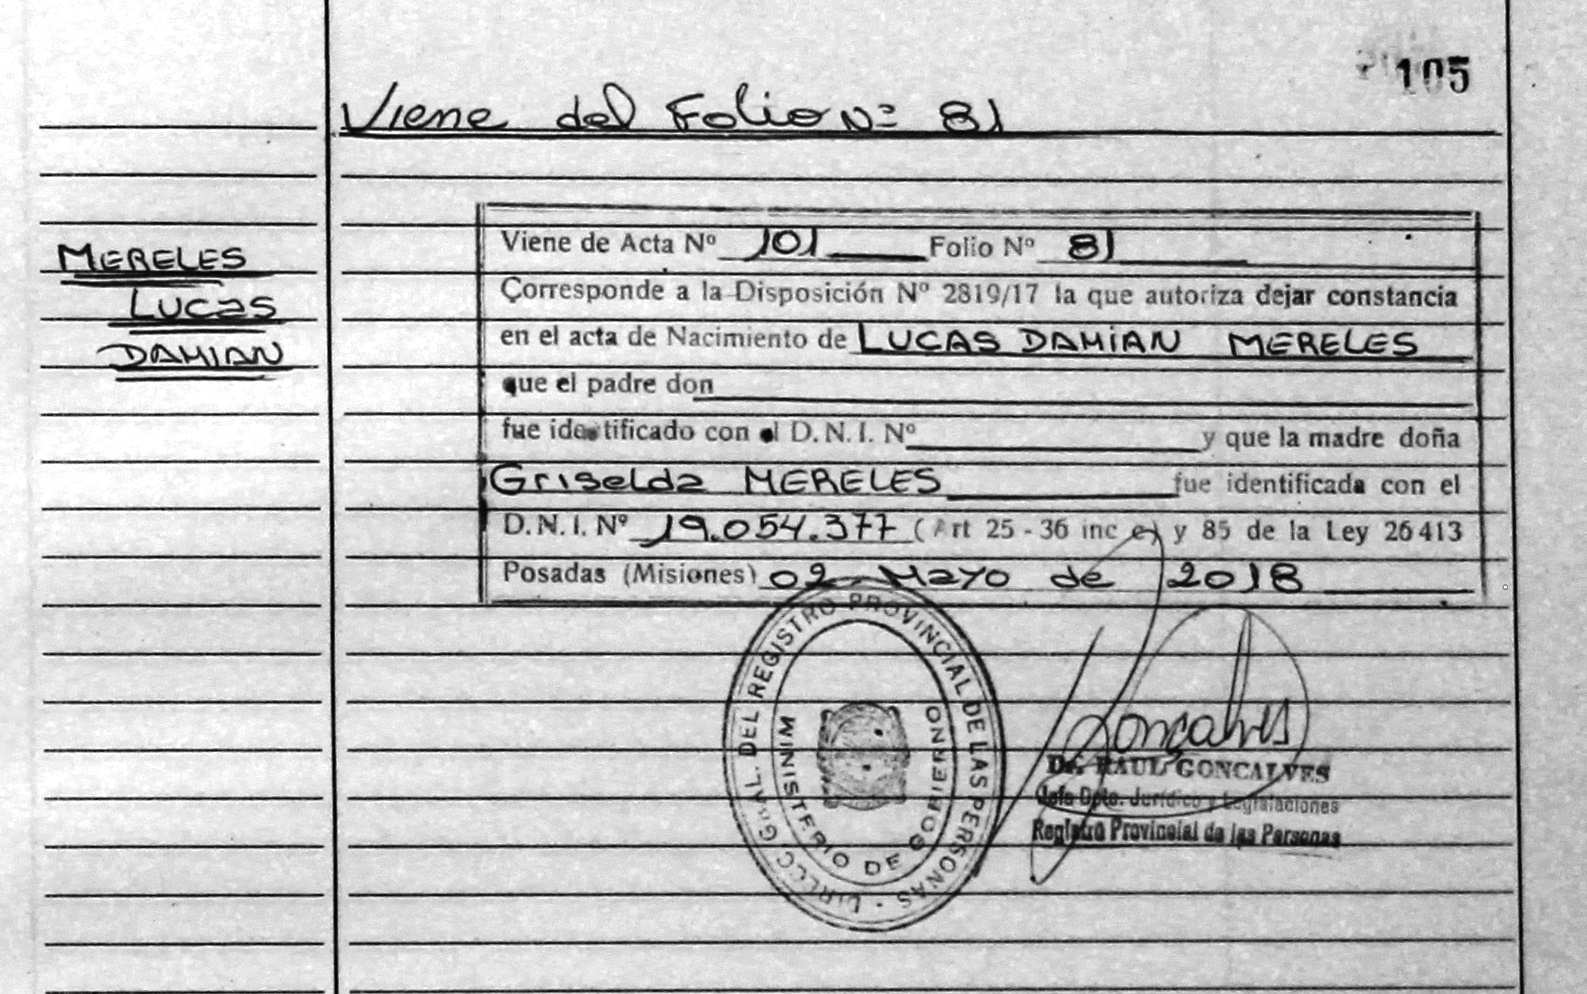 105
Viene del Folio Nº 81
MERELES
LUCAS
DAMIAN
Viene de Acta Nº 101 Folio Nº 81
Corresponde a la Disposición Nº 2819/17 la que autoriza dejar constancia
en el acta de Nacimiento de LUCAS DAMIAN MERELES
que el padre don
fue identificado con el D.N.I. Nº y que la madre doña
Griselda MERELES fue identificada con el
D.N.I. Nº 19.054.377 (Art 25 - 36 inc e) y 85 de la Ley 26413
Posadas (Misiones) 02 Mayo de 2018
DIRECC GRAL. DEL REGISTRO PROVINCIAL DE LAS PERSONAS
MINISTERIO DE GOBIERNO
Goncalves
Dr. RAUL GONCALVES
Jefe Dpto. Jurídico y Legislaciones
Registro Provincial de las Personas